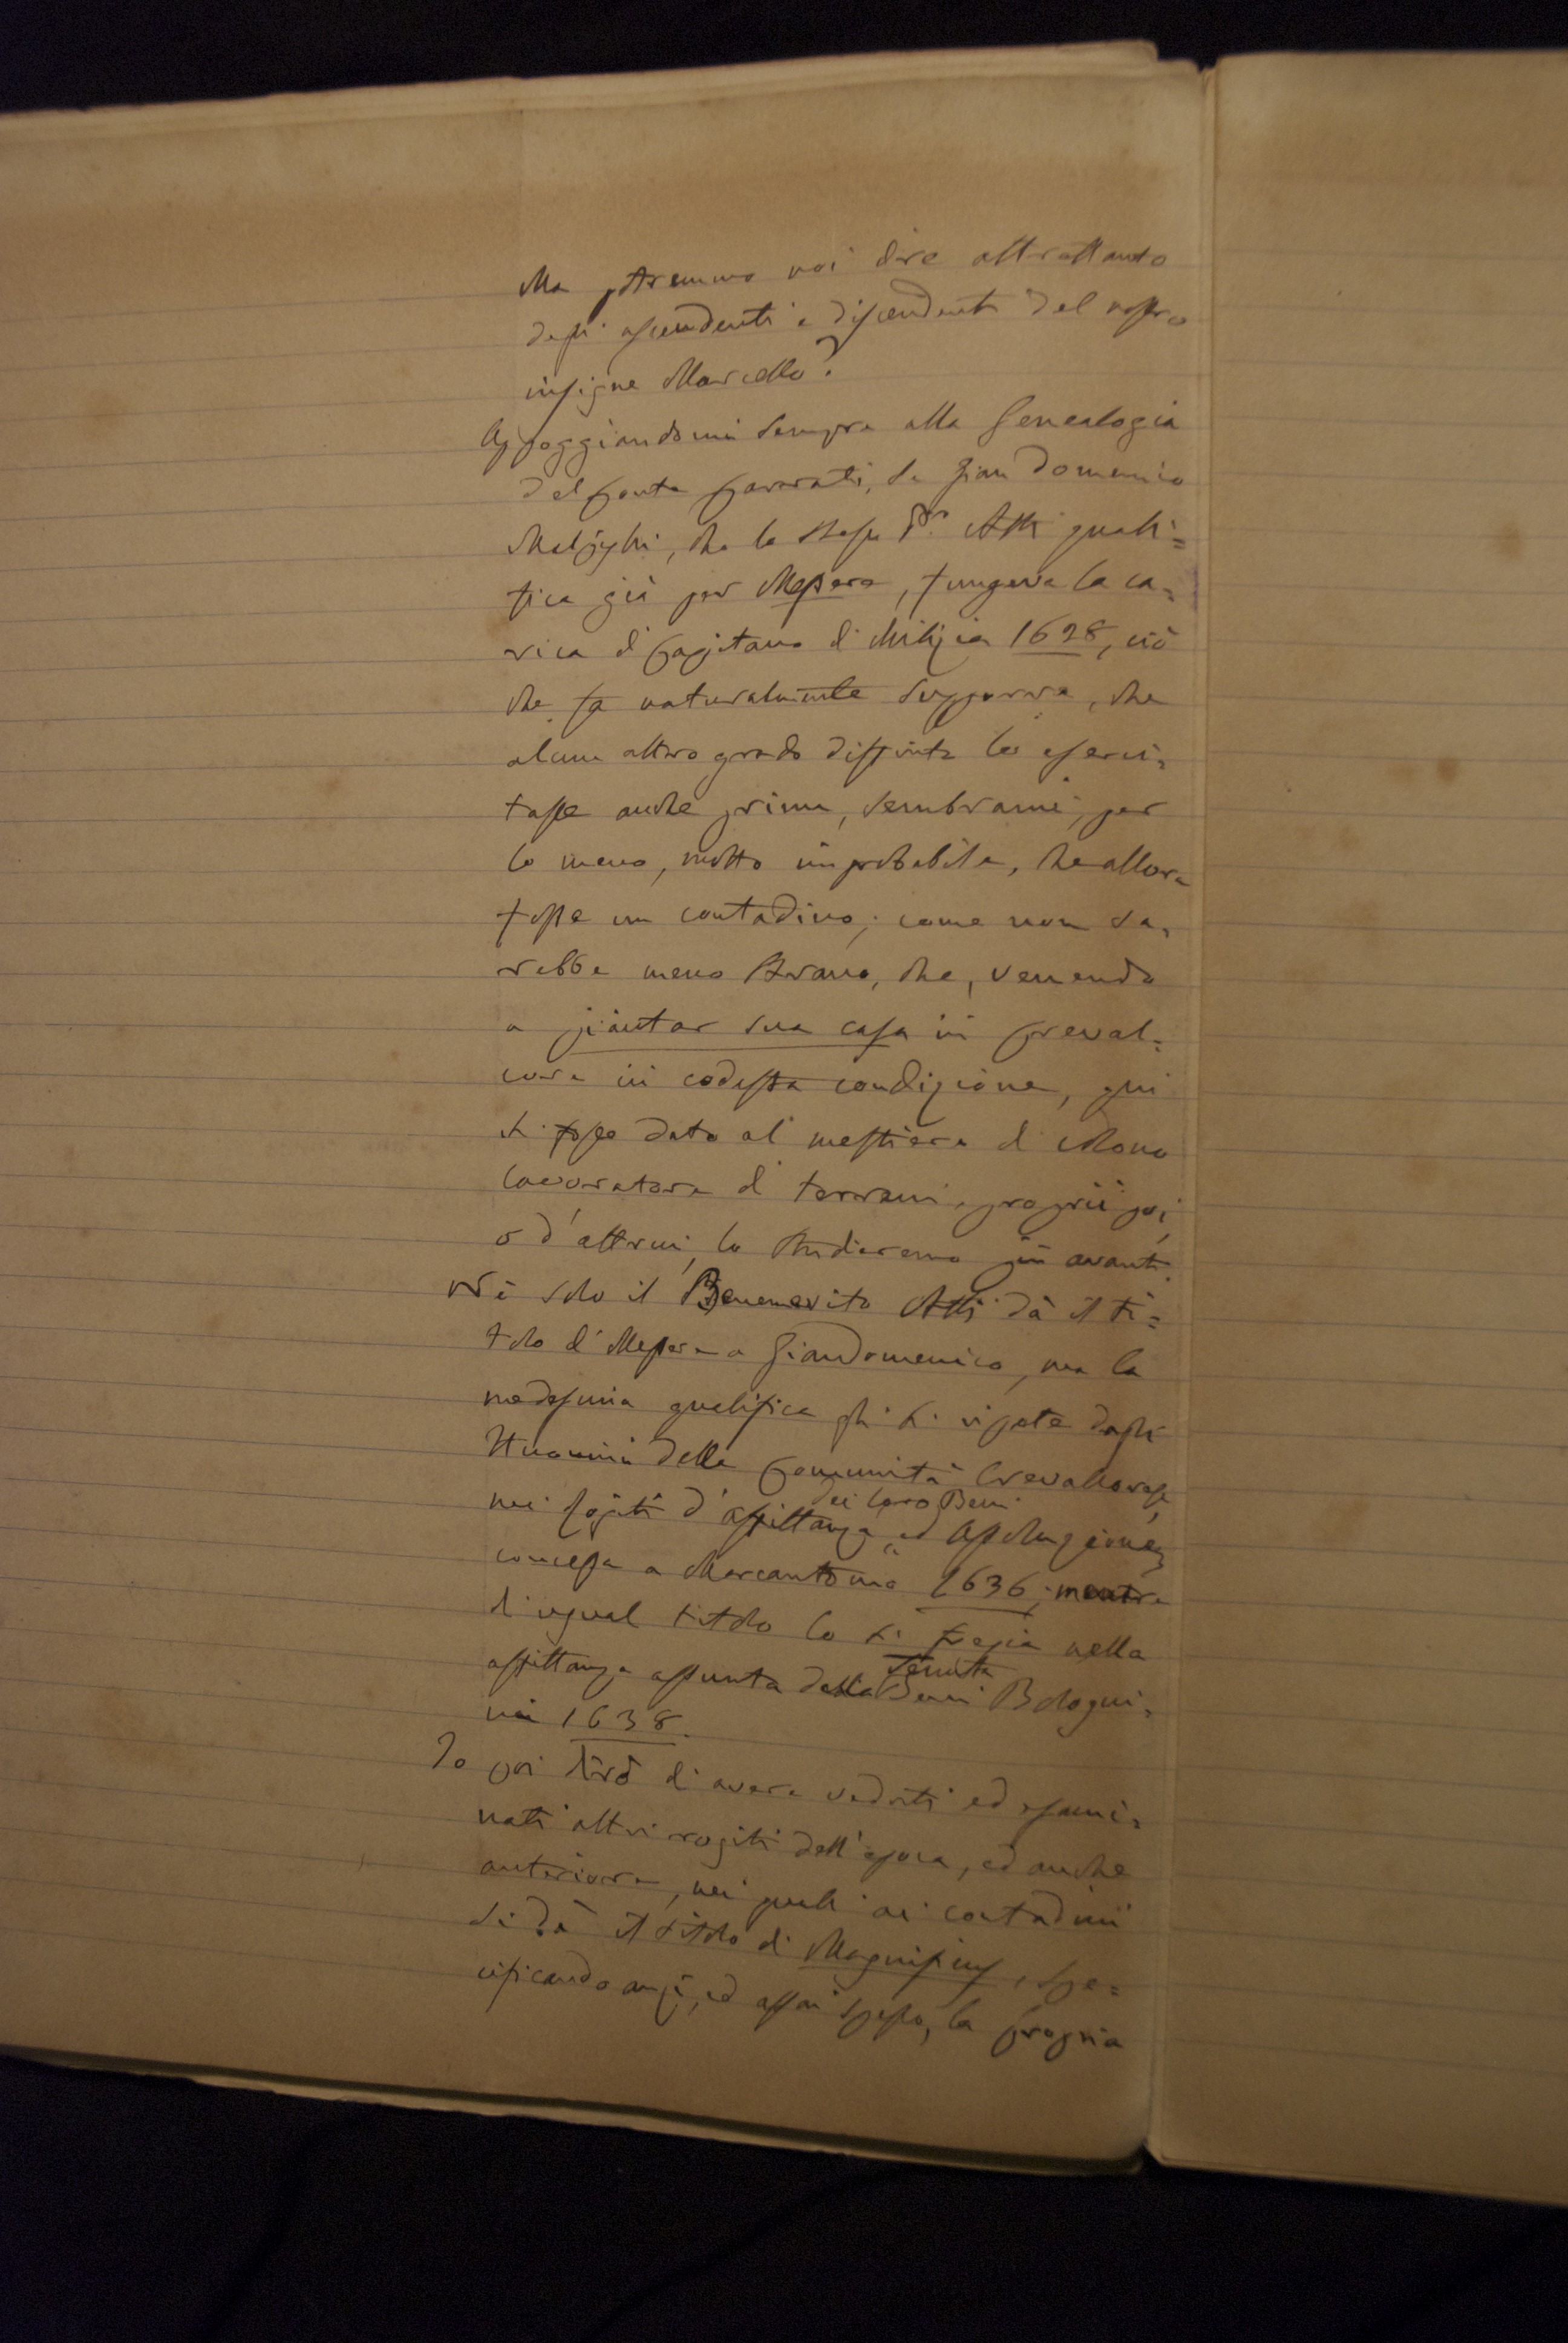 Ma potremmo noi dire altrettanto
degli ascendenti e discendenti del nostro
insigne Marcello?
Appoggiandomi sempre alla Genealogia
del Conte Cavazzi, se Gian Domenico
Malpighi, che lo stesso Dr. Atti quali=
fica già per Messere, fungeva la ca=
rica di Capitano di Milizia 1628, ciò
che fa naturalmente supporre, che
alcun altro grado distinto lo eserci=
tasse anche prima, sembrami, per
lo meno, molto improbabile, che allora
fosse un contadino; come non sa=
rebbe meno strano, che, venendo
a piantar sua casa in Creval=
core in codesta condizione, qui
si fosse dato al mestiere di
lavoratore di terreni, proprii poi,
o d'altrui, lo studieremo più avanti.
Nè solo il Benemerito Atti dà il ti=
tolo di Messere a Giandomenico, ma la
medesima qualifica gli si ripete dagli
Uomini della Comunità Crevalcorese,
nei Rogiti d'affittanza dei loro Beni ed Assoluzione,
concessa a Marcantonio 1636; mentre
d'ugual titolo lo si fregia nella
affittanza assunta della Tenuta Beni Bologni=
ni 1638.
Io poi dirò di avere veduti ed esami=
nati altri rogiti dell'epoca, ed anche
anteriore, nei quali ai contadini
si dà il titolo di Magnificus, spe=
cificando anzi, ed assai spesso, la propria